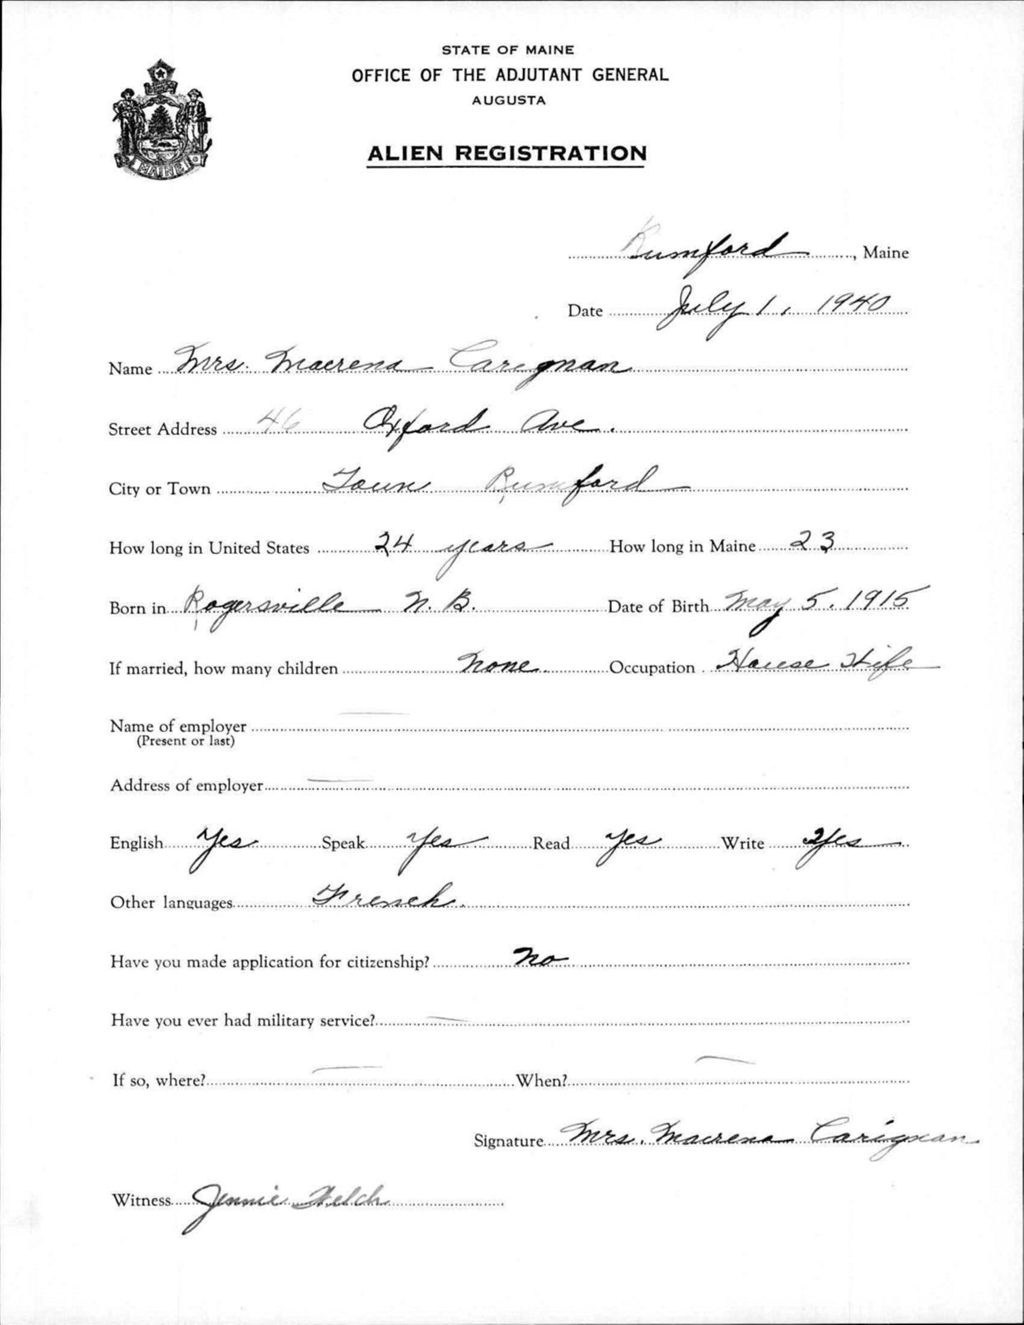 STATE OF MAINE
OFFICE OF THE ADJUTANT GENERAL
AUGUSTA
ALIEN REGISTRATION
MAINE
Rumford, Maine
Date July 1, 1940
Name Mrs. Maerena Carignan
Street Address 46 Oxford Ave.
City or Town Town Rumford
How long in United States 24 years How long in Maine 23
Born in Rogersville N. B. Date of Birth May 5, 1915
If married, how many children None Occupation House Wife
Name of employer
(Present or last)
Address of employer
English Yes Speak Yes Read Yes Write Yes
Other languages French.
Have you made application for citizenship? No
Have you ever had military service?
If so, where? When?
Signature Mrs. Maerena Carignan
Witness Jennie Welch